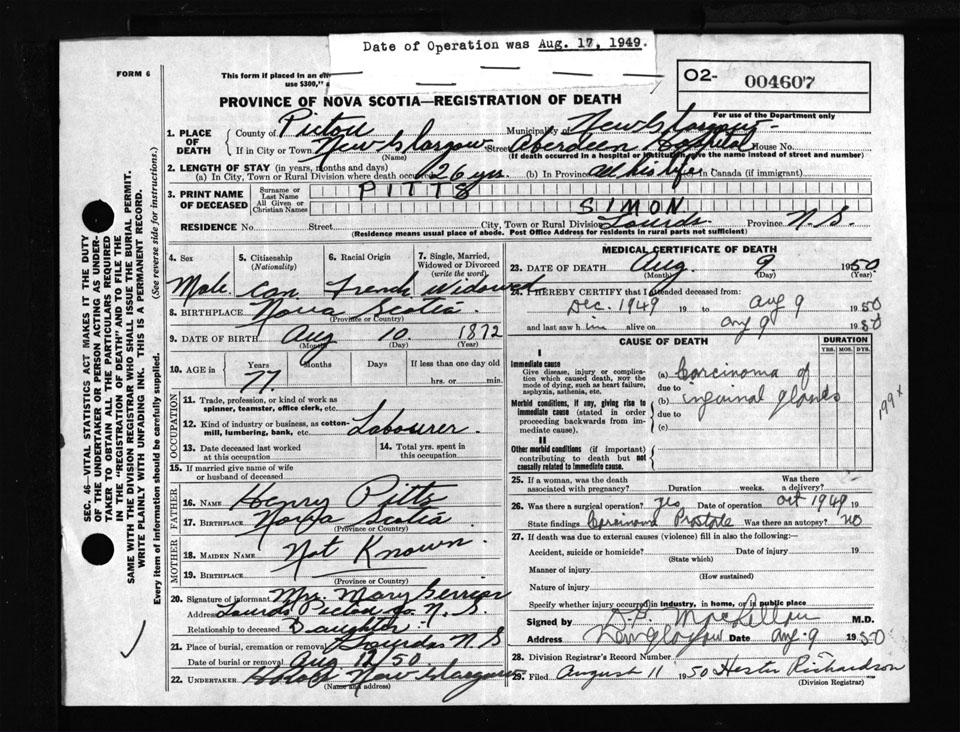 Date of Operation was Aug. 17, 1949.
FORM 6
This form if placed in an
use $300,"
O2-
004607
PROVINCE OF NOVA SCOTIA—REGISTRATION OF DEATH
For use of the Department only
1. PLACE OF DEATH
County of Pictou
Municipality of New Glasgow
If in City or Town New Glasgow Street Aberdeen Hospital House No.
(Name) (If death occurred in a hospital or institution, give the name instead of street and number)
2. LENGTH OF STAY (in years, months and days)
(a) In City, Town or Rural Division where death occurred 26 yrs. (b) In Province All his life in Canada (if immigrant)
3. PRINT NAME OF DECEASED
Surname or Last Name PITTS
All Given or Christian Names SIMON
RESIDENCE No. Street City, Town or Rural Division Lourdes Province N.S.
(Residence means usual place of abode. Post Office Address for residents in rural parts not sufficient)
4. Sex
Male
5. Citizenship (Nationality)
Can
6. Racial Origin
French
7. Single, Married, Widowed or Divorced (write the word)
Widowed
8. BIRTHPLACE Nova Scotia
(Province or Country)
9. DATE OF BIRTH Aug 10 1872
(Month) (Day) (Year)
10. AGE in
Years Months Days If less than one day old
77 hrs. or min.
OCCUPATION
11. Trade, profession, or kind of work as spinner, teamster, office clerk, etc.
12. Kind of industry or business, as cotton-mill, lumbering, bank, etc. Labourer
13. Date deceased last worked at this occupation
14. Total yrs. spent in this occupation
15. If married give name of wife or husband of deceased
FATHER
16. NAME Henry Pitts
17. BIRTHPLACE Nova Scotia
(Province or Country)
MOTHER
18. MAIDEN NAME Not Known
19. BIRTHPLACE
(Province or Country)
20. Signature of informant Mrs. Mary
Address Lourdes Pictou Co. N.S.
Relationship to deceased Daughter
21. Place of burial, cremation or removal Lourdes N.S
Date of burial or removal Aug 12/50
22. UNDERTAKER New Glasgow
(Name and address)
MEDICAL CERTIFICATE OF DEATH
23. DATE OF DEATH Aug. 9 1950
(Month) (Day) (Year)
24. I HEREBY CERTIFY that I attended deceased from:
Dec. 1949 19 to Aug 9 1950
and last saw him alive on Aug 9 1950
CAUSE OF DEATH
DURATION
YRS. MOS. DYS.
I
Immediate cause
Give disease, injury or complication which caused death, not the mode of dying, such as heart failure, asphyxia, asthenia, etc.
(a) Carcinoma of
due to
Morbid conditions, if any, giving rise to immediate cause (stated in order proceeding backwards from immediate cause).
(b) inguinal glands
due to
(c)
199x
II
Other morbid conditions (if important) contributing to death but not causally related to immediate cause.
25. If a woman, was the death associated with pregnancy? Duration weeks. Was there a delivery?
26. Was there a surgical operation? Yes Date of operation Oct 1949 19
State findings Carcinoma Prostate Was there an autopsy? no
27. If death was due to external causes (violence) fill in also the following:
Accident, suicide or homicide? Date of injury 19
(State which)
Manner of injury
(How sustained)
Nature of injury
Specify whether injury occurred in industry, in home, or in public place
Signed by MacLellan M.D.
Address New Glasgow Date Aug. 9 1950
28. Division Registrar's Record Number
29. Filed August 11 1950 Hester Richardson
(Division Registrar)
SEC. 46—VITAL STATISTICS ACT MAKES IT THE DUTY
OF THE UNDERTAKER OR PERSON ACTING AS UNDER-
TAKER TO OBTAIN ALL THE PARTICULARS REQUIRED
IN THE "REGISTRATION OF DEATH" AND TO FILE THE
SAME WITH THE DIVISION REGISTRAR WHO SHALL ISSUE THE BURIAL PERMIT.
WRITE PLAINLY WITH UNFADING INK. THIS IS A PERMANENT RECORD.
Every item of information should be carefully supplied. (See reverse side for instructions.)